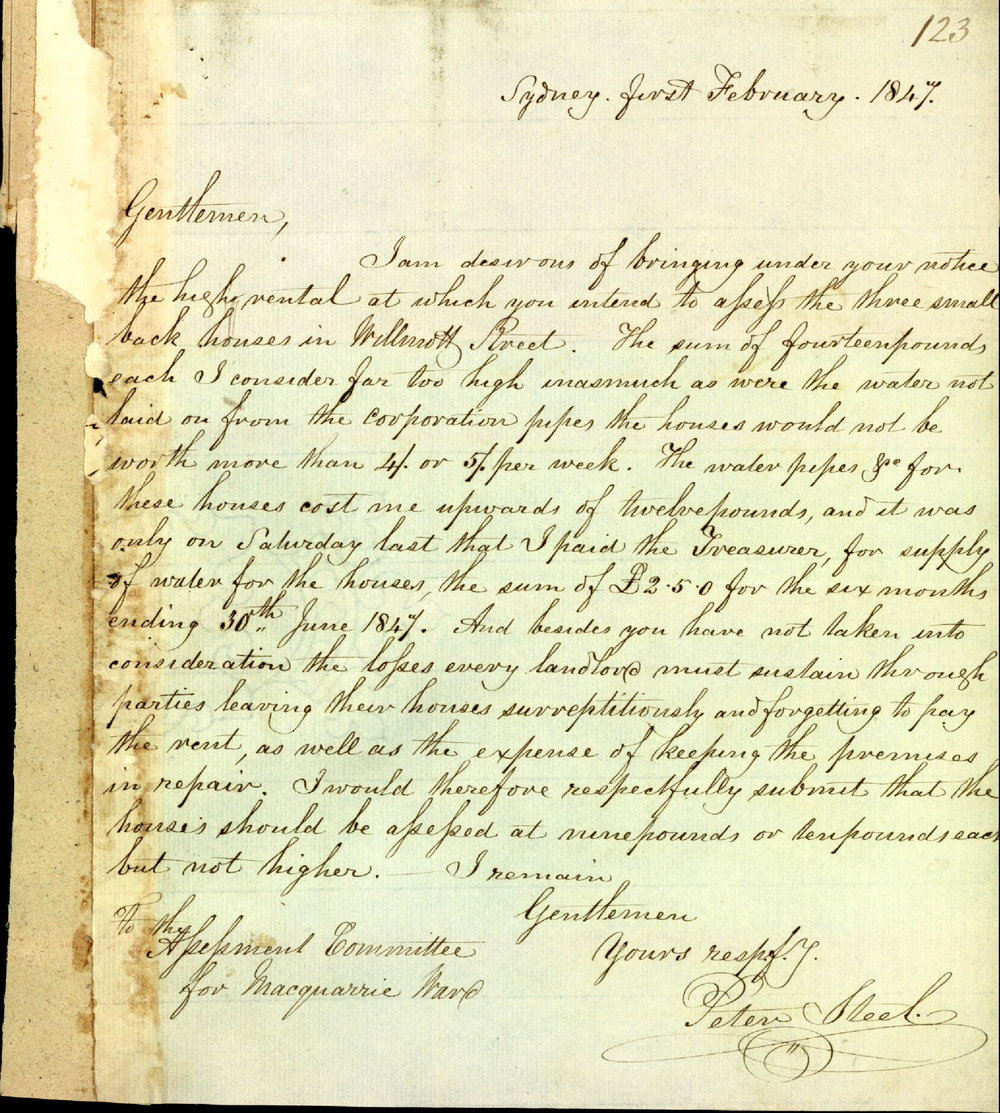 123
Sydney. first February. 1847.
Gentlemen,
I am desirous of bringing under your notice
the high rental at which you intend to assess the three small
back houses in Willmott Street. The sum of fourteenpounds
each I consider far too high inasmuch as were the water not
laid on from the corporation pipes the houses would not be
worth more than 4/. or 5/. per week. The water pipes &c for
these houses cost me upwards of twelvepounds, and it was
only on Saturday last that I paid the Treasurer, for supply
of water for the houses, the sum of £2.5.0 for the six months
ending 30th June 1847. And besides you have not taken into
consideration the losses every landlord must sustain through
parties leaving their houses surreptitiously and forgetting to pay
the rent, as well as the expense of keeping the premises
in repair. I would therefore respectfully submit that the
houses should be assessed at ninepounds or tenpounds each
but not higher. — I remain
Gentlemen
Yours respf.y.
Peter Steel.
To the
Assessment Committee
for Macquarrie Ward